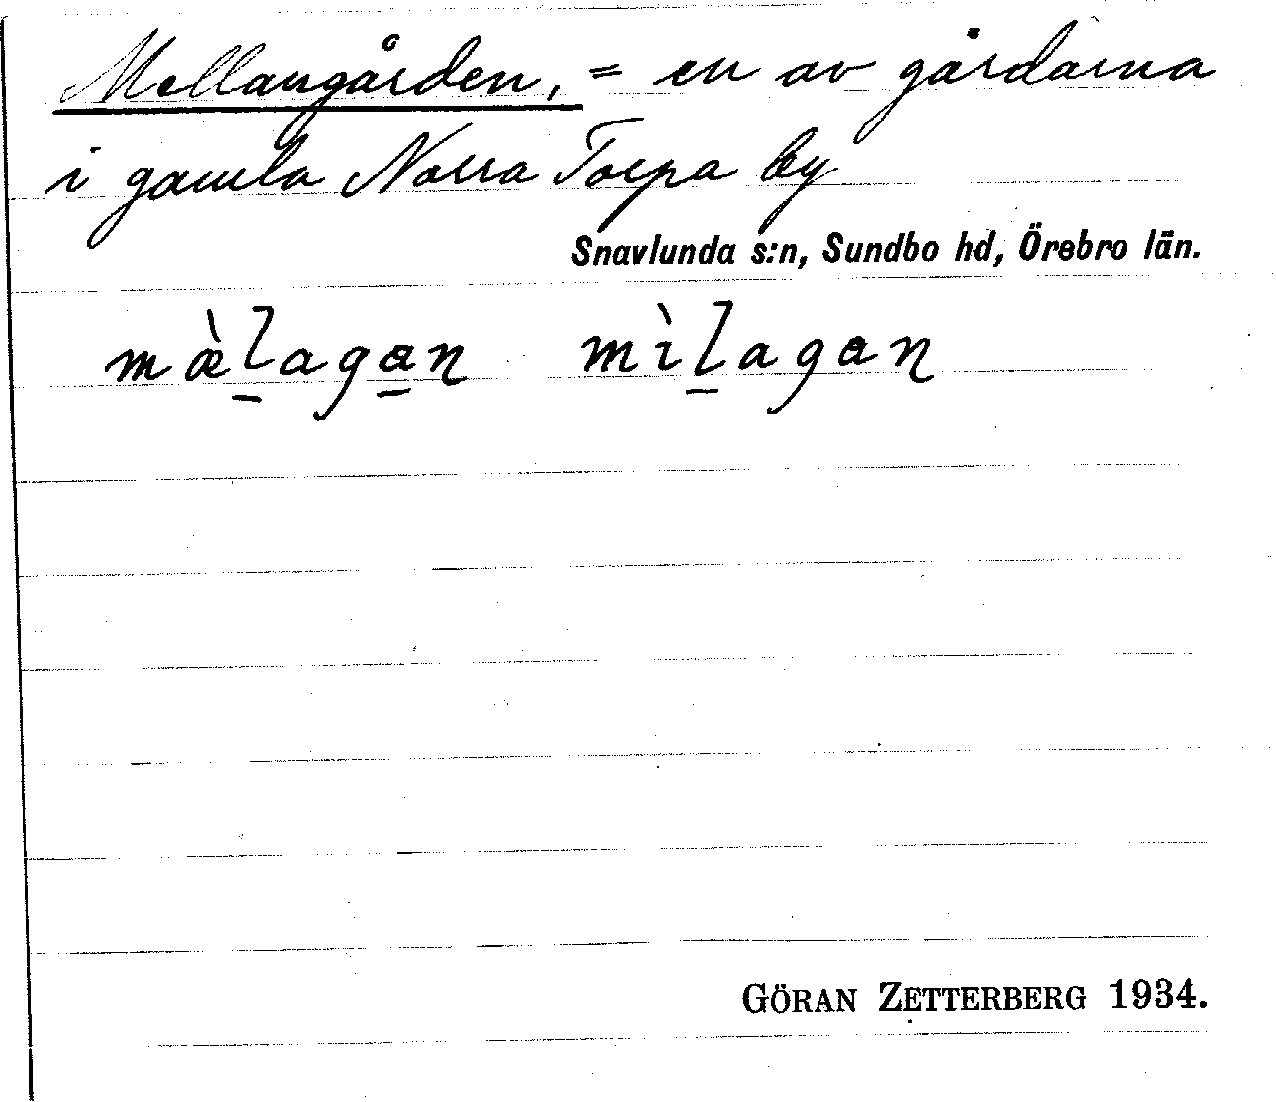 Mellangården, = en av gårdarna
i gamla Norra Torpa by
Snavlunda s:n, Sundbo hd, Örebro län.
mæ̀l̠aga̠n mìl̠agan
GÖRAN ZETTERBERG 1934.